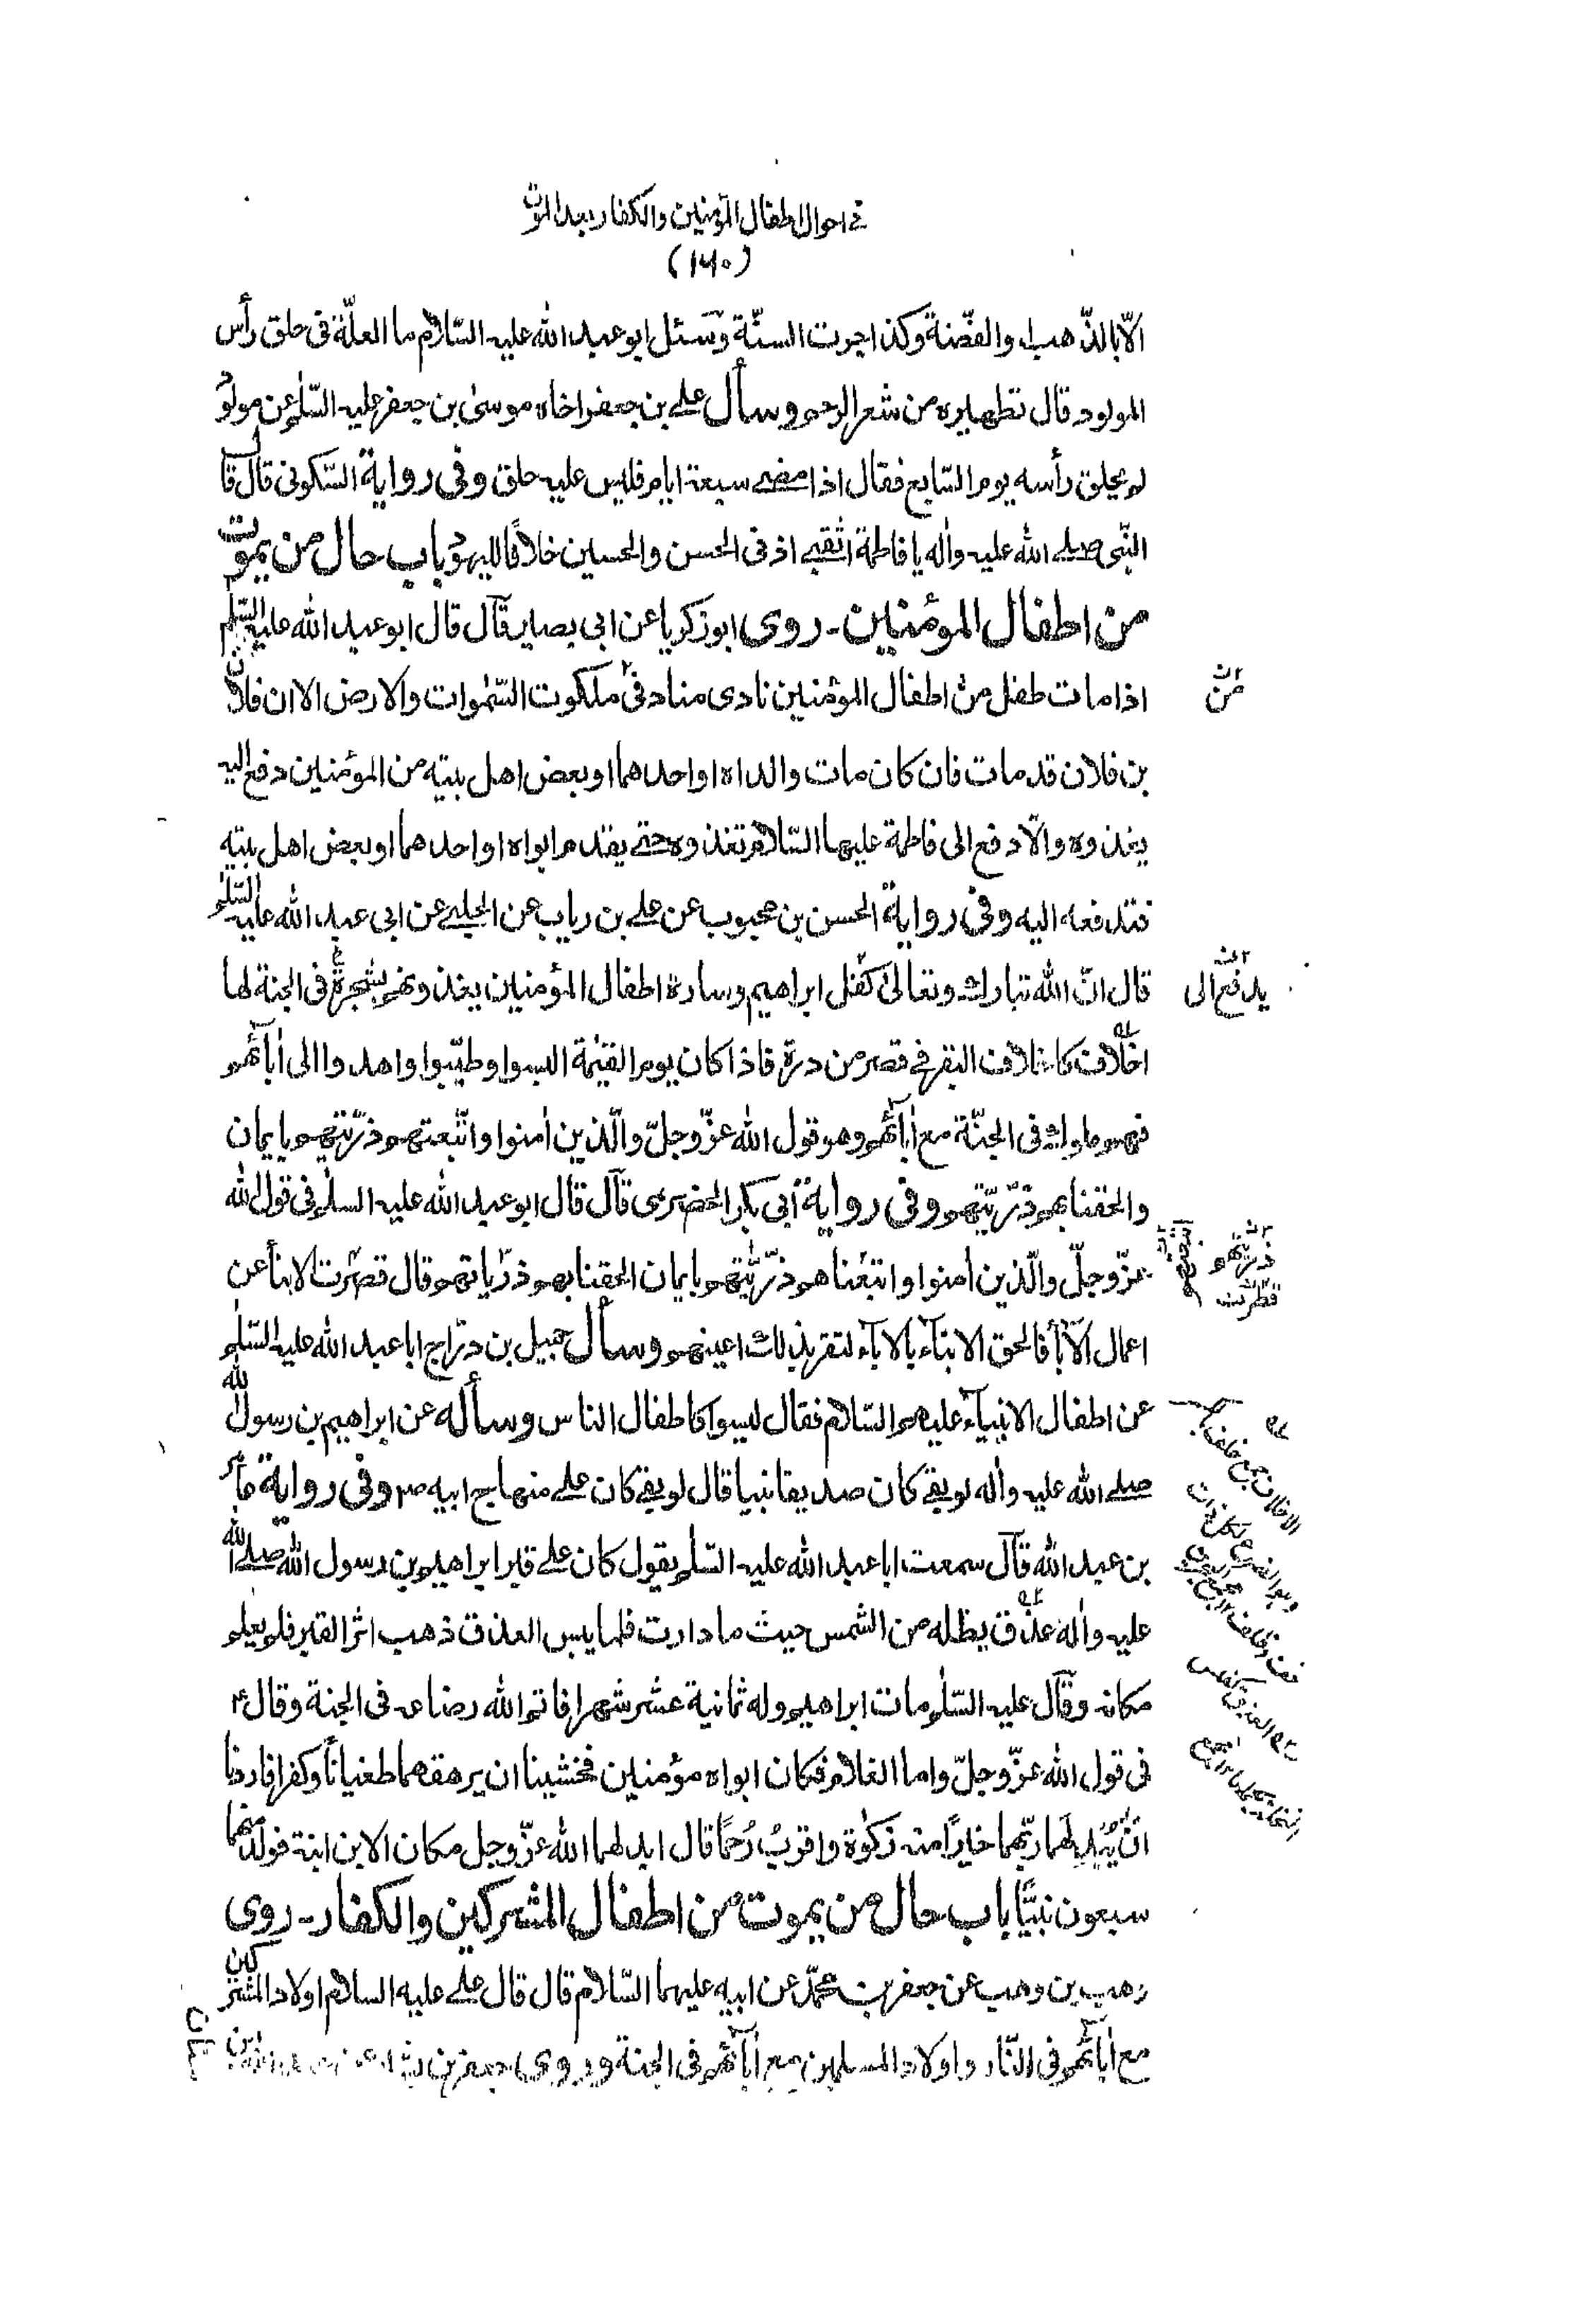 في احوال اطفال المؤمنين والكفار بعد الموت
(١٦٠)
الّا بالذّهب والفضّة وكذا جرت السنّة وَسئل ابو عبد الله عليه السّلام ما العلّة فى حلق رأس
المولود قال تطهيره من شعر الرحم وسأل علي بن جعفر اخاه موسىٰ بن جعفر عليه السّلم عن مولود
لم يحلق رأسه يوم السّابع فقال اذا مضى سبعة ايام فليس عليه حلق وفى رواية السّكونى قال قال
النّبى صلى الله عليه واٰله يا فاطمة اثقبي اذنى الحسن والحسين خلافًا لليهود باب حال من يموت
من اطفال المؤمنين ـ روى ابو زكريا عن ابى بصير قال قال ابو عبد الله عليه السّلم
اذا مات طفل من اطفال المؤمنين نادى مناد فى ملكوت السّمٰوات والارض الا ان فلان
بن فلان قد مات فان كان مات والداه او احدهما او بعض اهل بيته من المؤمنين دفع اليه
يغذوه والّا دفع الى فاطمة عليها السّلام تغذوه حتى يقدم ابواه او احدهما او بعض اهل بيته
فتدفعه اليه وفى رواية الحسن بن محبوب عن علي بن رياب عن الحلبي عن ابى عبد الله عليه السّلم
قال انّ الله تبارك وتعالىٰ كفّل ابراهيم وسارة اطفال المؤمنين يغذونهم بشجرة فى الجنة لها
اخلاف كاخلاف البقر في قصر من درّة فاذا كان يوم القيٰمة البسوا وطيّبوا واهدوا الى اٰبآئهم
فهم ملوك فى الجنّة مع اٰبآئهم وهو قول الله عزّ وجلّ والّذين اٰمنوا واتّبعتهم ذرّيّتهم بايمان
والحقنا بهم ذرّيّتهم وفى رواية ابى بكر الحضرمى قال قال ابو عبد الله عليه السلٰم فى قول الله
عزّ وجلّ والّذين اٰمنوا واتبعناهم ذرّيّتهم بايمان الحقنا بهم ذرّياتهم قال قصرت الابنآء عن
اعمال الآبآء فالحق الابنآء بالابآء لتقر بذلك اعينهم وسأل جميل بن درّاج ابا عبد الله عليه السّلم
عن اطفال الانبيآء عليهم السّلام فقال ليسوا كاطفال الناس وسأله عن ابراهيم بن رسول الله
صلى الله عليه واٰله لو بقي كان صديقا نبيا قال لو بقي كان على منهاج ابيه ص وفى رواية عامر
بن عبد الله قال سمعت ابا عبد الله عليه السّلم يقول كان على قبر ابراهيم بن رسول الله صلى الله
عليه واٰله عذق يظله من الشمس حيث ما دارت فلما يبس العذق ذهب اثر القبر فلم يعلم
مكانه وقال عليه السّلم مات ابراهيم وله ثمانية عشر شهرا فاتم الله رضاعه فى الجنة وقال ع
فى قول الله عزّ وجلّ واما الغلام فكان ابواه مؤمنين فخشينا ان يرهقهما طغيانًا وكفرا فاردنا
ان يُبْدِلهما ربّهما خيرًا منه زكٰوة واقربُ رُحمًا قال ابدلهما الله عزّ وجل مكان الابن ابنة فولد منهما
سبعون نبيًّا باب حال من يموت من اطفال المشركين والكفار ـ روى
وهب بن وهب عن جعفر بن محمّد عن ابيه عليهما السّلام قال قال علي عليه السلام اولاد المشركين
مع اٰبآئهم فى النّار واولاد المسلمين مع اٰبآئهم فى الجنة وروى جعفر بن
من
يدفع الى
ذرّيّتهم